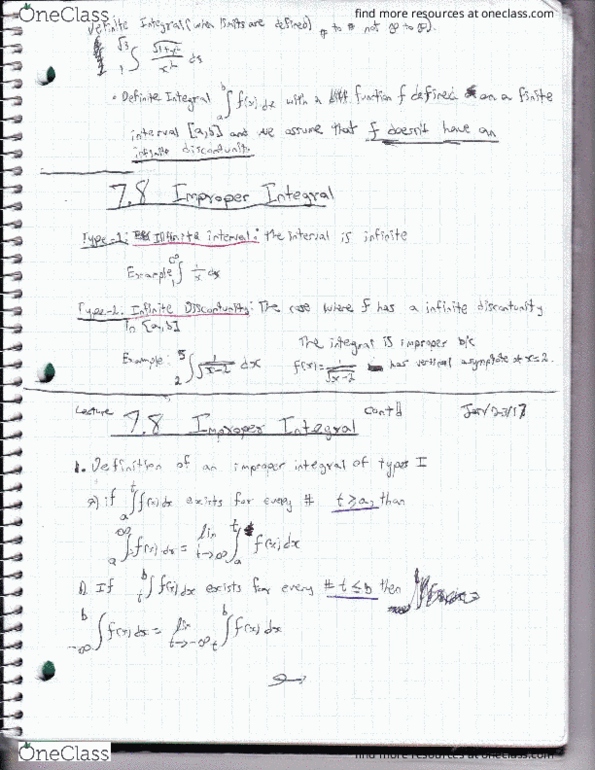 OneClass
find more resources at oneclass.com
Definite Integral (when limits are defined) # to # not ∞ to ∞).
∫₁^√3 √(1+x²)/x² dx
• Definite Integral ∫ₐᵇ f(x) dx with a function f defined on a finite
interval [a,b] and we assume that f doesn't have an
infinite discontunity
7.8 Improper Integral
Type-1: Infinite interval: The interval is infinite
Example ∫₁^∞ 1/x dx
Type-2. Infinite Discontunity: The case where f has a infinite discontunity
in [a,b]
Example: ∫₂⁵ 1/√(x-2) dx
The integral is improper b/c
f(x)=1/√(x-2) has vertical asymptote at x=2.
Lecture 7.8 Improper Integral cont'd Jan/23/17
1. Definition of an improper integral of types I
a) if ∫ₐᵗ f(x) dx exists for every # t≥a, than
∫ₐ^∞ f(x) dx = lim t→∞ ∫ₐᵗ f(x) dx
If ∫ₜᵇ f(x) dx exists for every # t≤b then
∫₋∞ᵇ f(x) dx = lim t→-∞ ∫ₜᵇ f(x) dx
OneClass
find more resources at oneclass.com